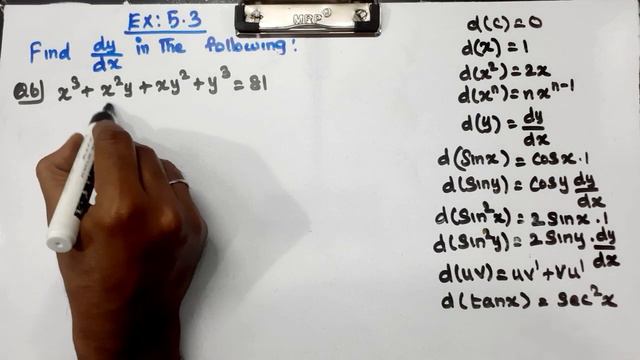 Ex: 5.3
Find dy/dx in The following:
Q6) x³ + x²y + xy² + y³ = 81
MRP
d(c) = 0
d(x) = 1
d(x²) = 2x
d(xⁿ) = nxⁿ⁻¹
d(y) = dy/dx
d(sinx) = cosx.1
d(siny) = cosy dy/dx
d(sin²x) = 2sinx.1
d(sin²y) = 2siny.dy/dx
d(uv) = uv' + vu'
d(tanx) = sec²x